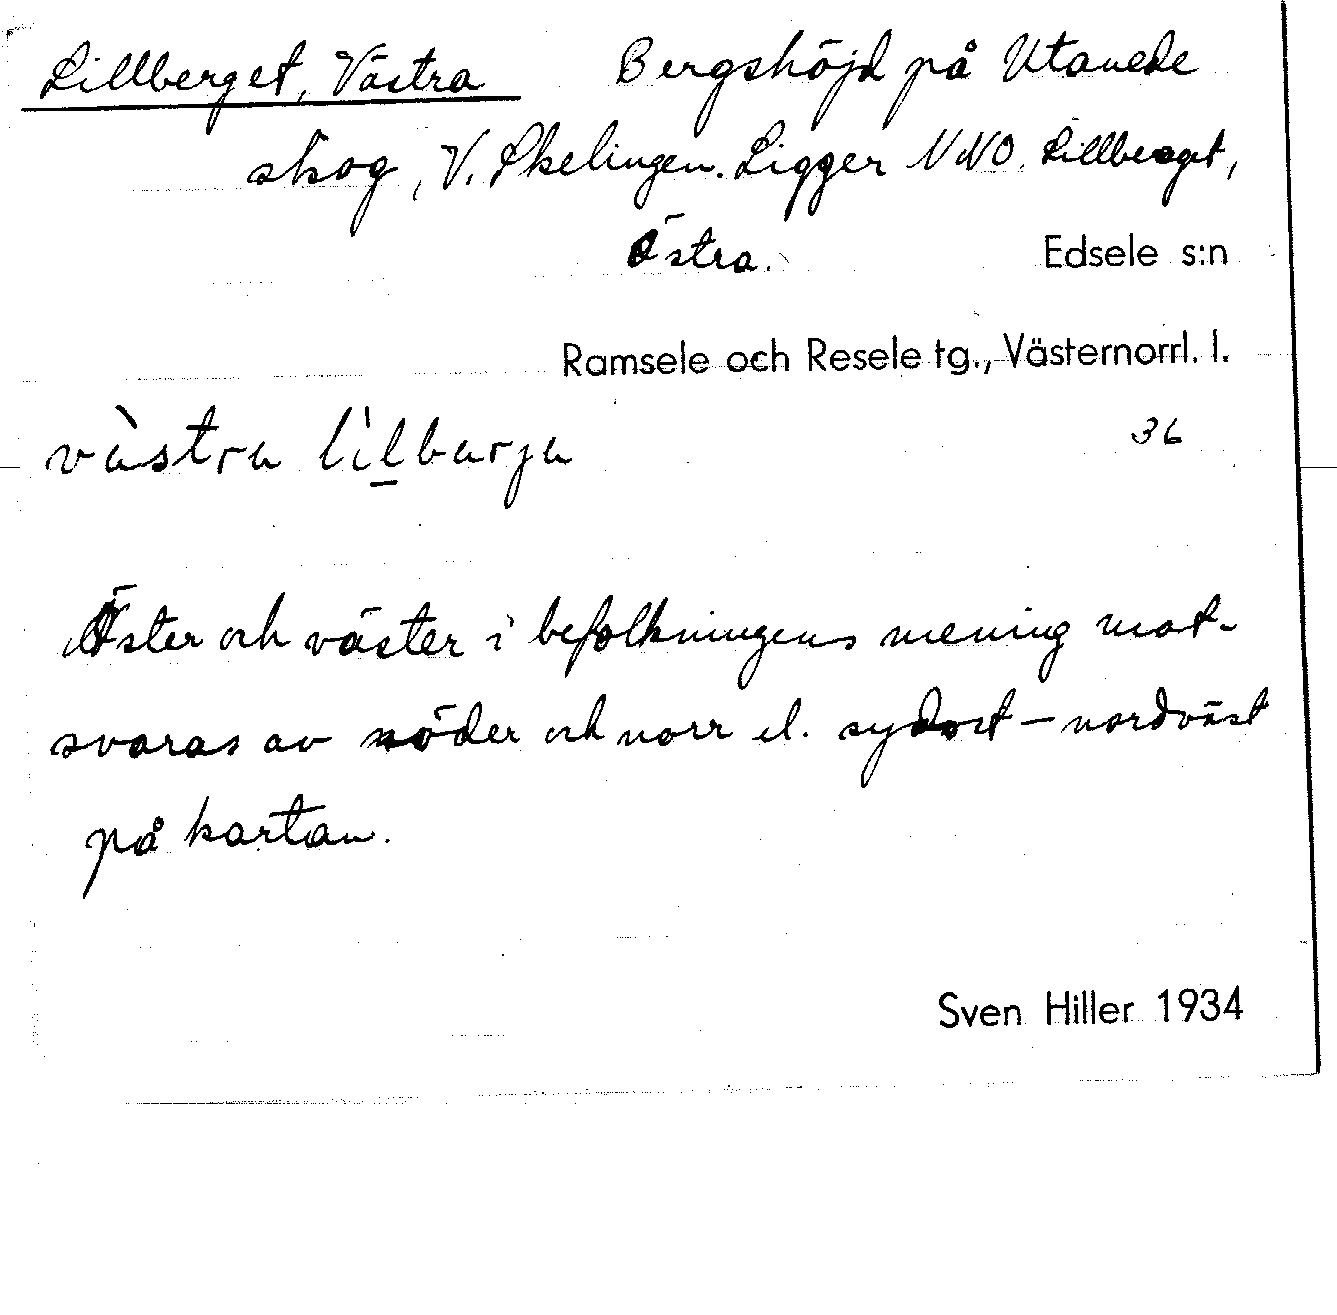 Lillberget, Västra Bergshöjd på Utanede
skog, V. Skelingen. Ligger NNO. Lillberget,
Östra.
Edsele s:n
Ramsele och Resele tg., Västernorrl. l.
västra lilbarja
36
Öster och väster i befolkningens mening mot-
svaras av söder och norr el. sydost - nordväst
på kartan.
Sven Hiller 1934